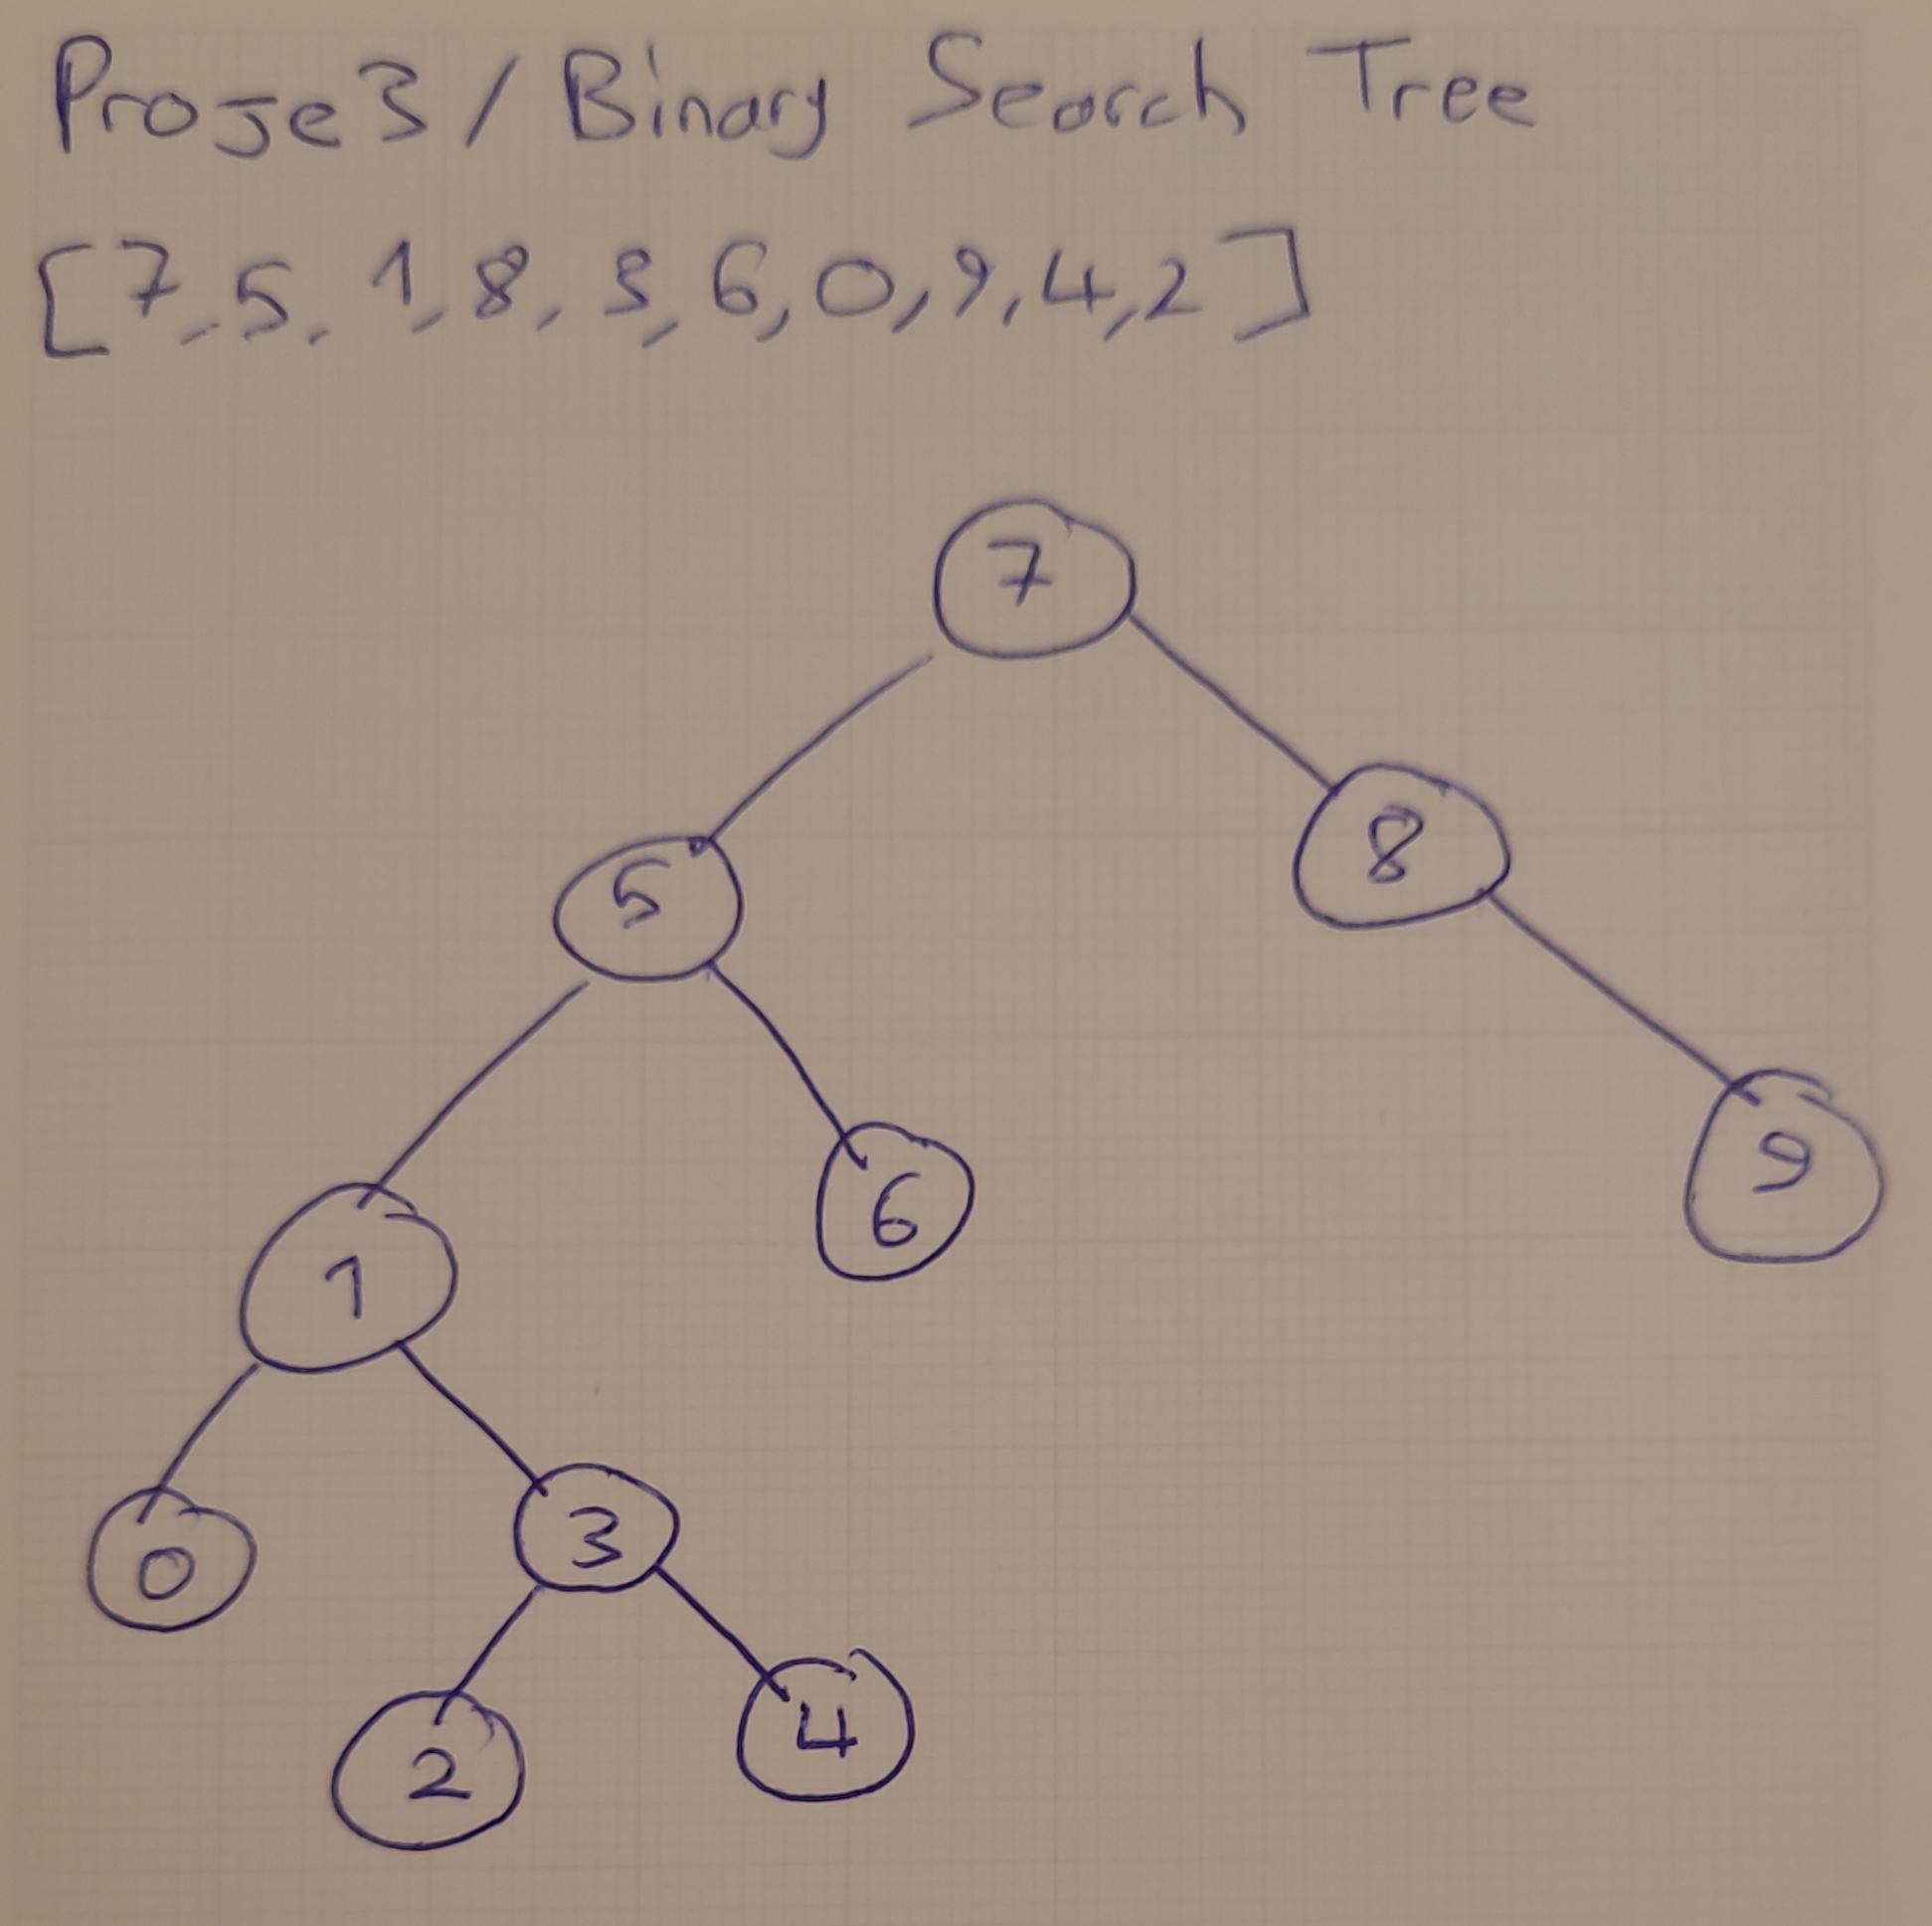 Proje 3 / Binary Search Tree
[7, 5, 1, 8, 3, 6, 0, 9, 4, 2]
7
5
8
1
6
9
0
3
2
4